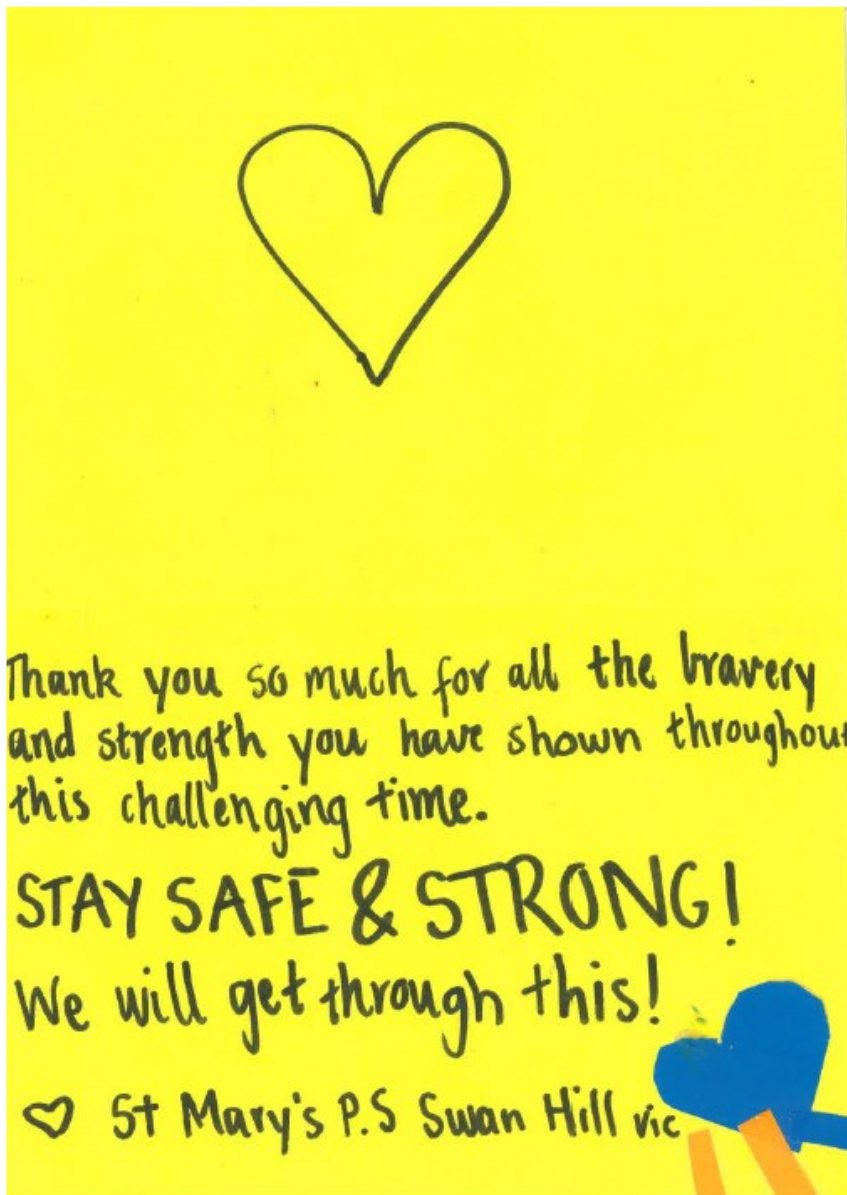 Thank you so much for all the bravery
and strength you have shown throughout
this challenging time.
STAY SAFE & STRONG!
We will get through this!
♡ St Mary's P.S Swan Hill vic